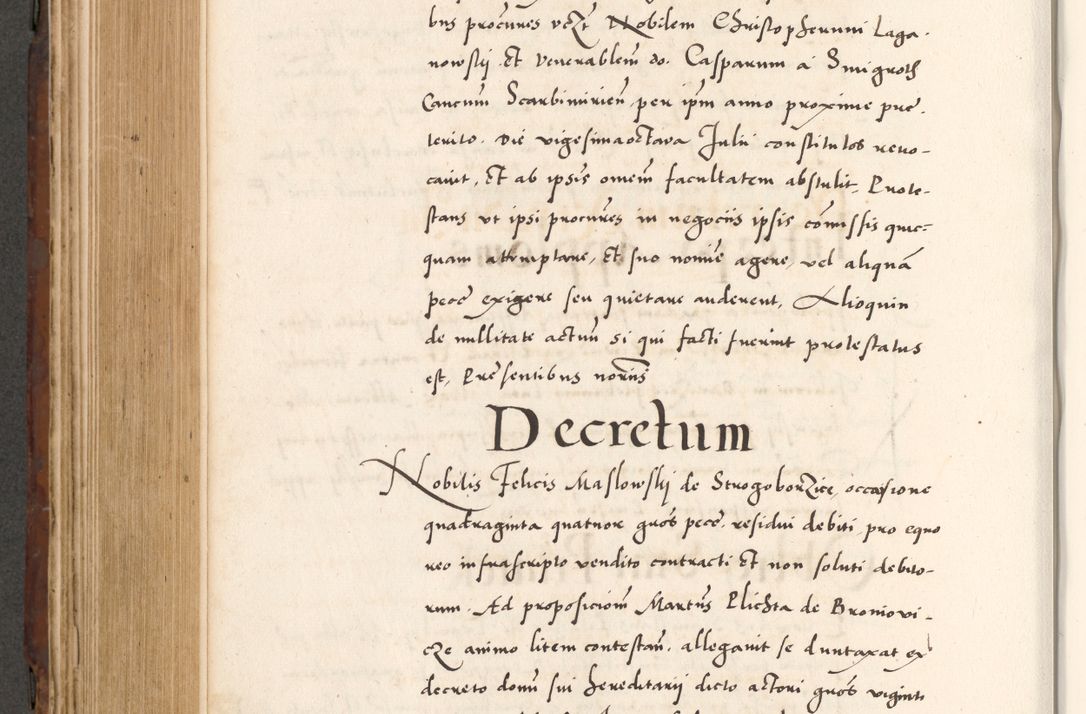 bus procures vczt Nobilem Christopherum Laga-
nowskij. Et venerablem do. Casparum a Smigroth
Cancum Scarbimirien, per ipm anno proxime pre-
terito. Die vigesimaoctava Julii constitutos revo-
cavit, Et ab ipsis omem facultatem abstulit, Prote-
stans vt ipsi procures in negociis ipsis comissis quic-
quam attemptare, Et suo nomie agere, vel aliqua
pece exigere seu quietare auderent, Alioquin
de nullitate actuu si qui facti fuerint protestatus
est, Presentibus noriis
Decretum
Nobilis Felicis Maslowskij de Strogoborzice, occasione
quadraginta quatuor gros pece. residui debiti pro equo
reo infrascripto vendito contracti Et non soluti debito-
rum. Ad proposiciom Martus Plichta de Broniovi-
cze animo litem contestan. allegavit se duntaxat ex
decreto domi sui hereditarij dicto actori gros viginti